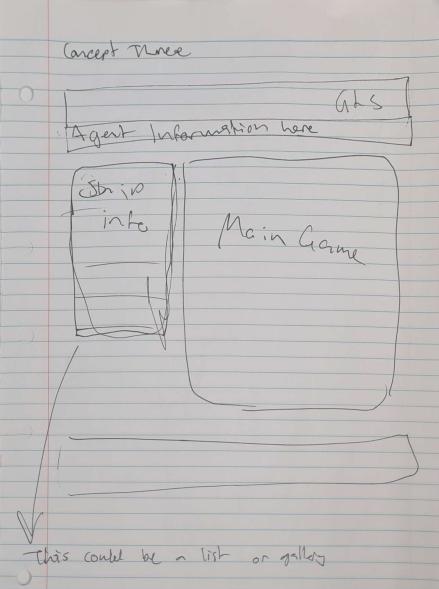 Concept Three
GLS
Agent Information here
Ship
info
Main Game
This could be a list or gallery